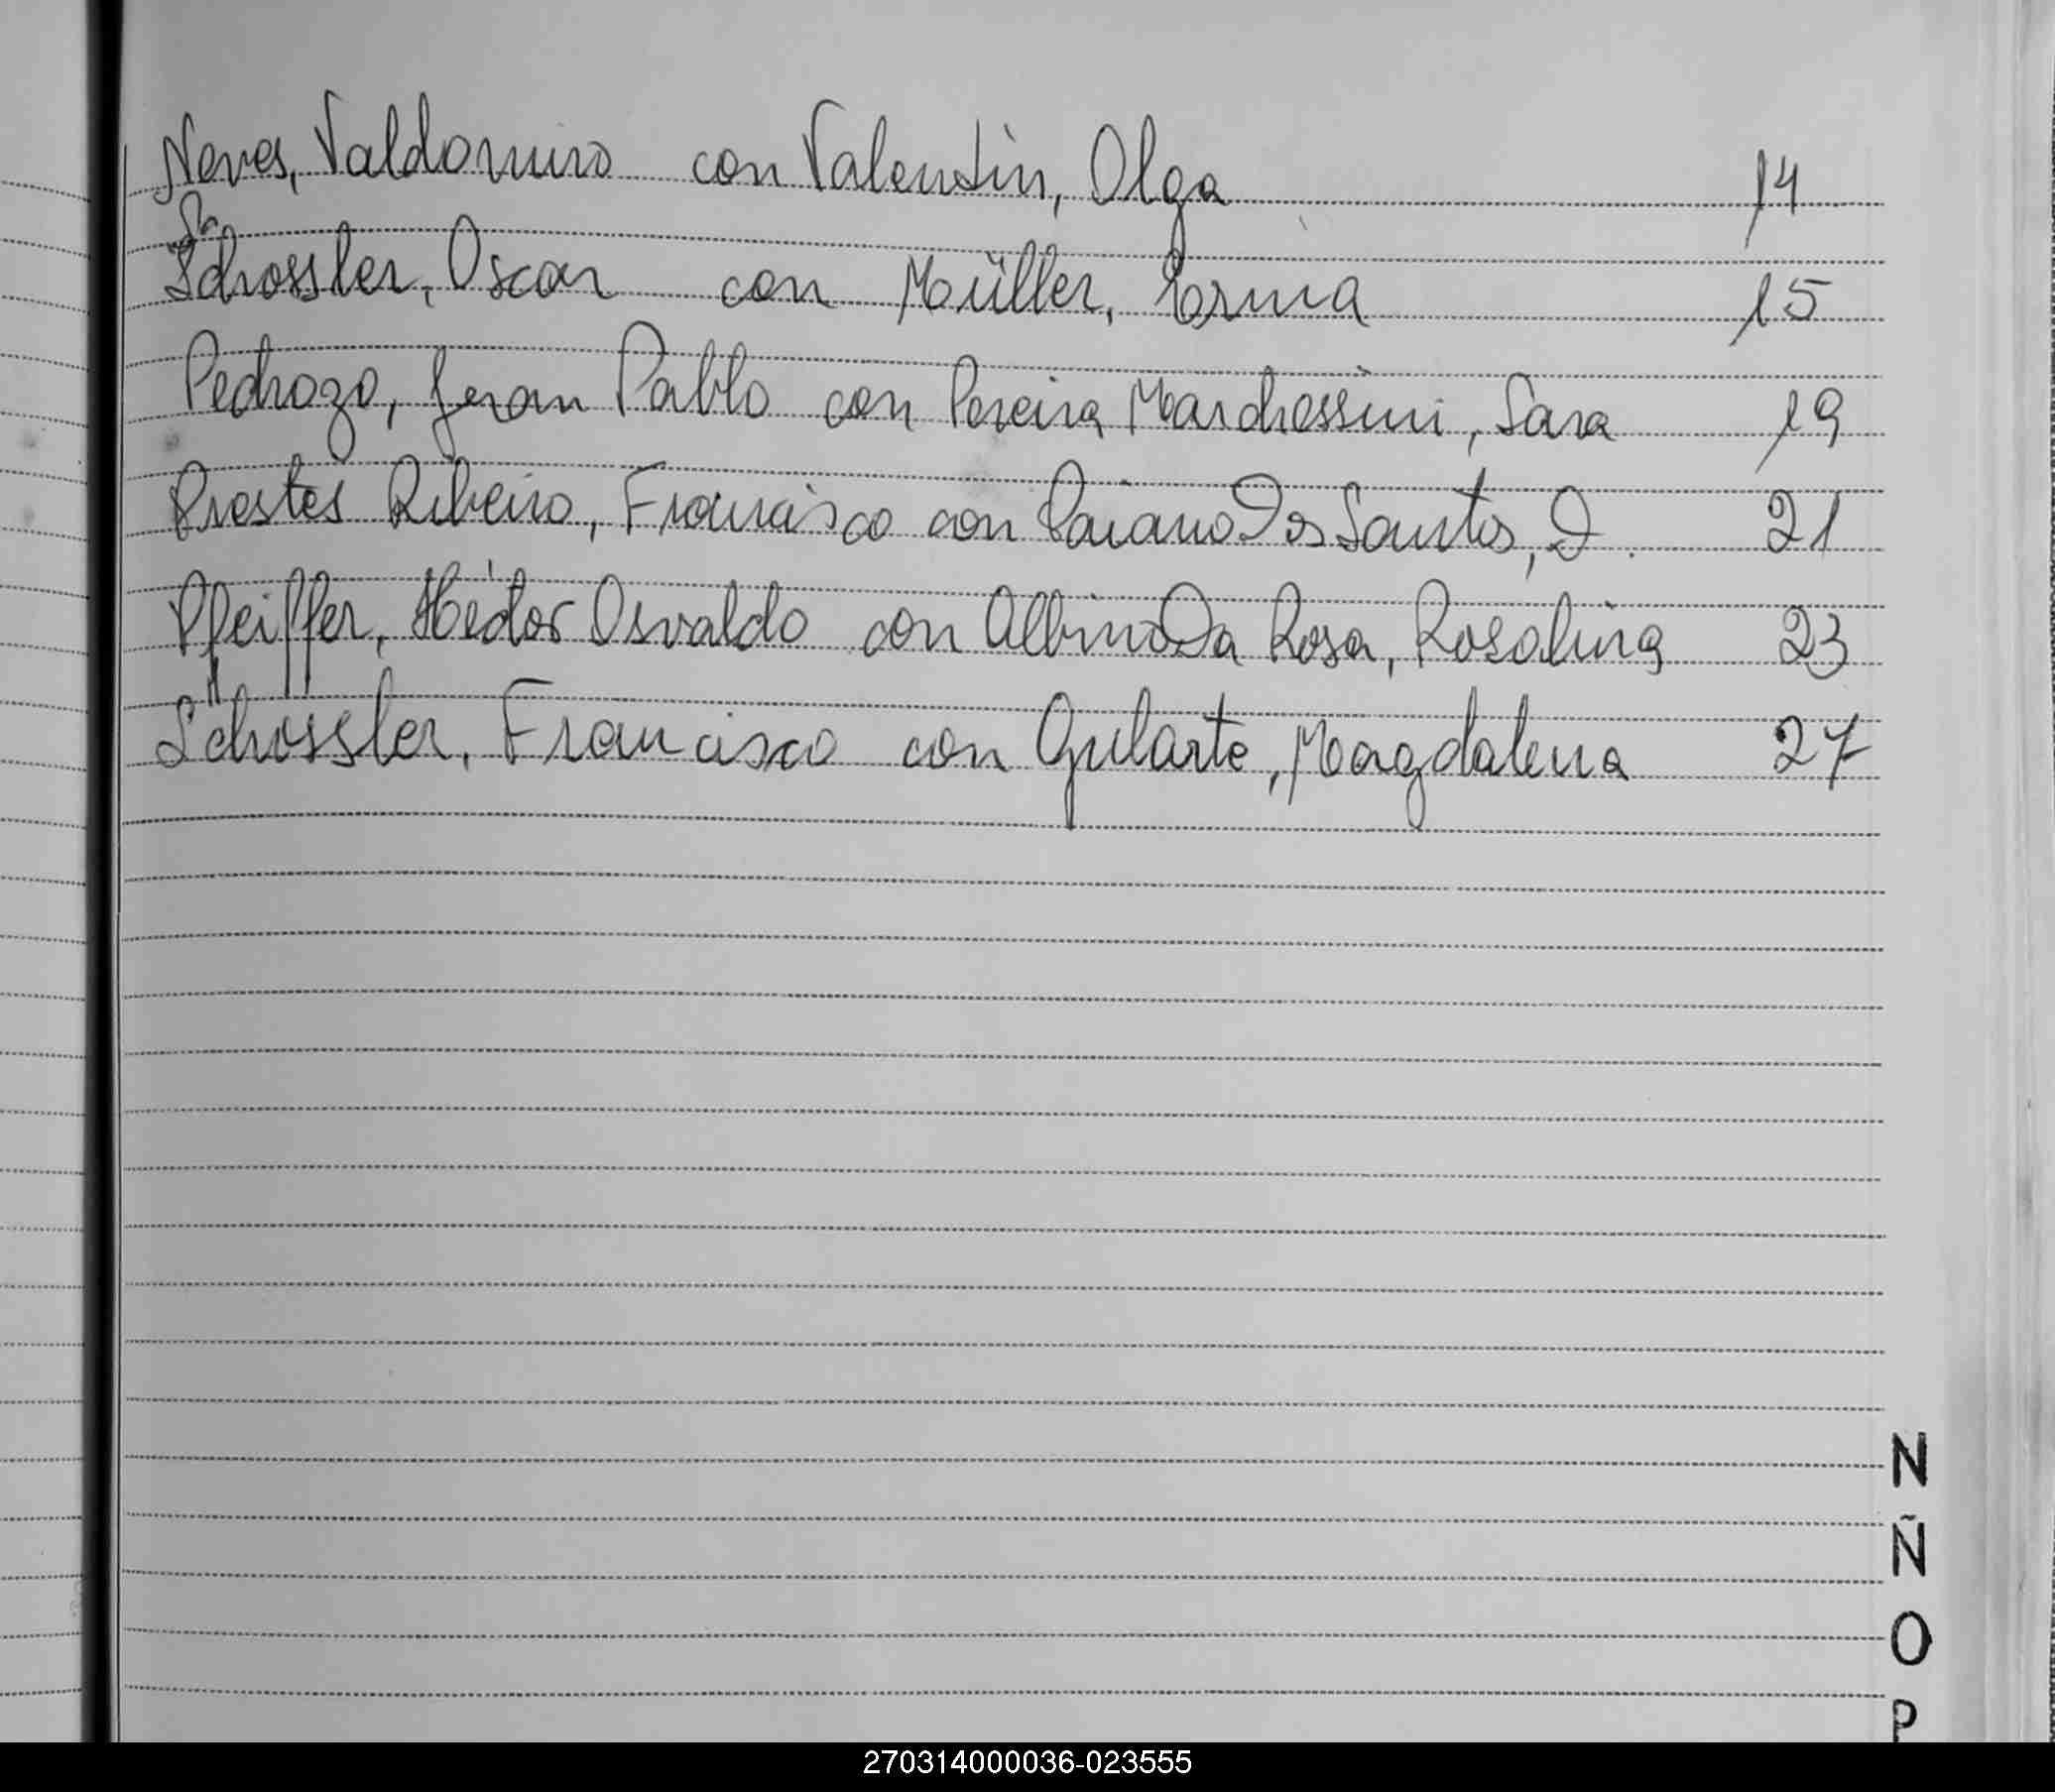 Neves, Valdomiro con Valentin, Olga 14
Schossler, Oscar con Müller, Erma 15
Pedrozo, Juan Pablo con Pereira Marchessini, Sara 19
Prestes Ribeiro, Francisco con Dos Santos, D. 21
Pfeiffer, Héctor Osvaldo con Albino Da Rosa, Rosalina 23
Schossler, Francisco con Gularte, Magdalena 27
N
Ñ
O
P
270314000036-023555